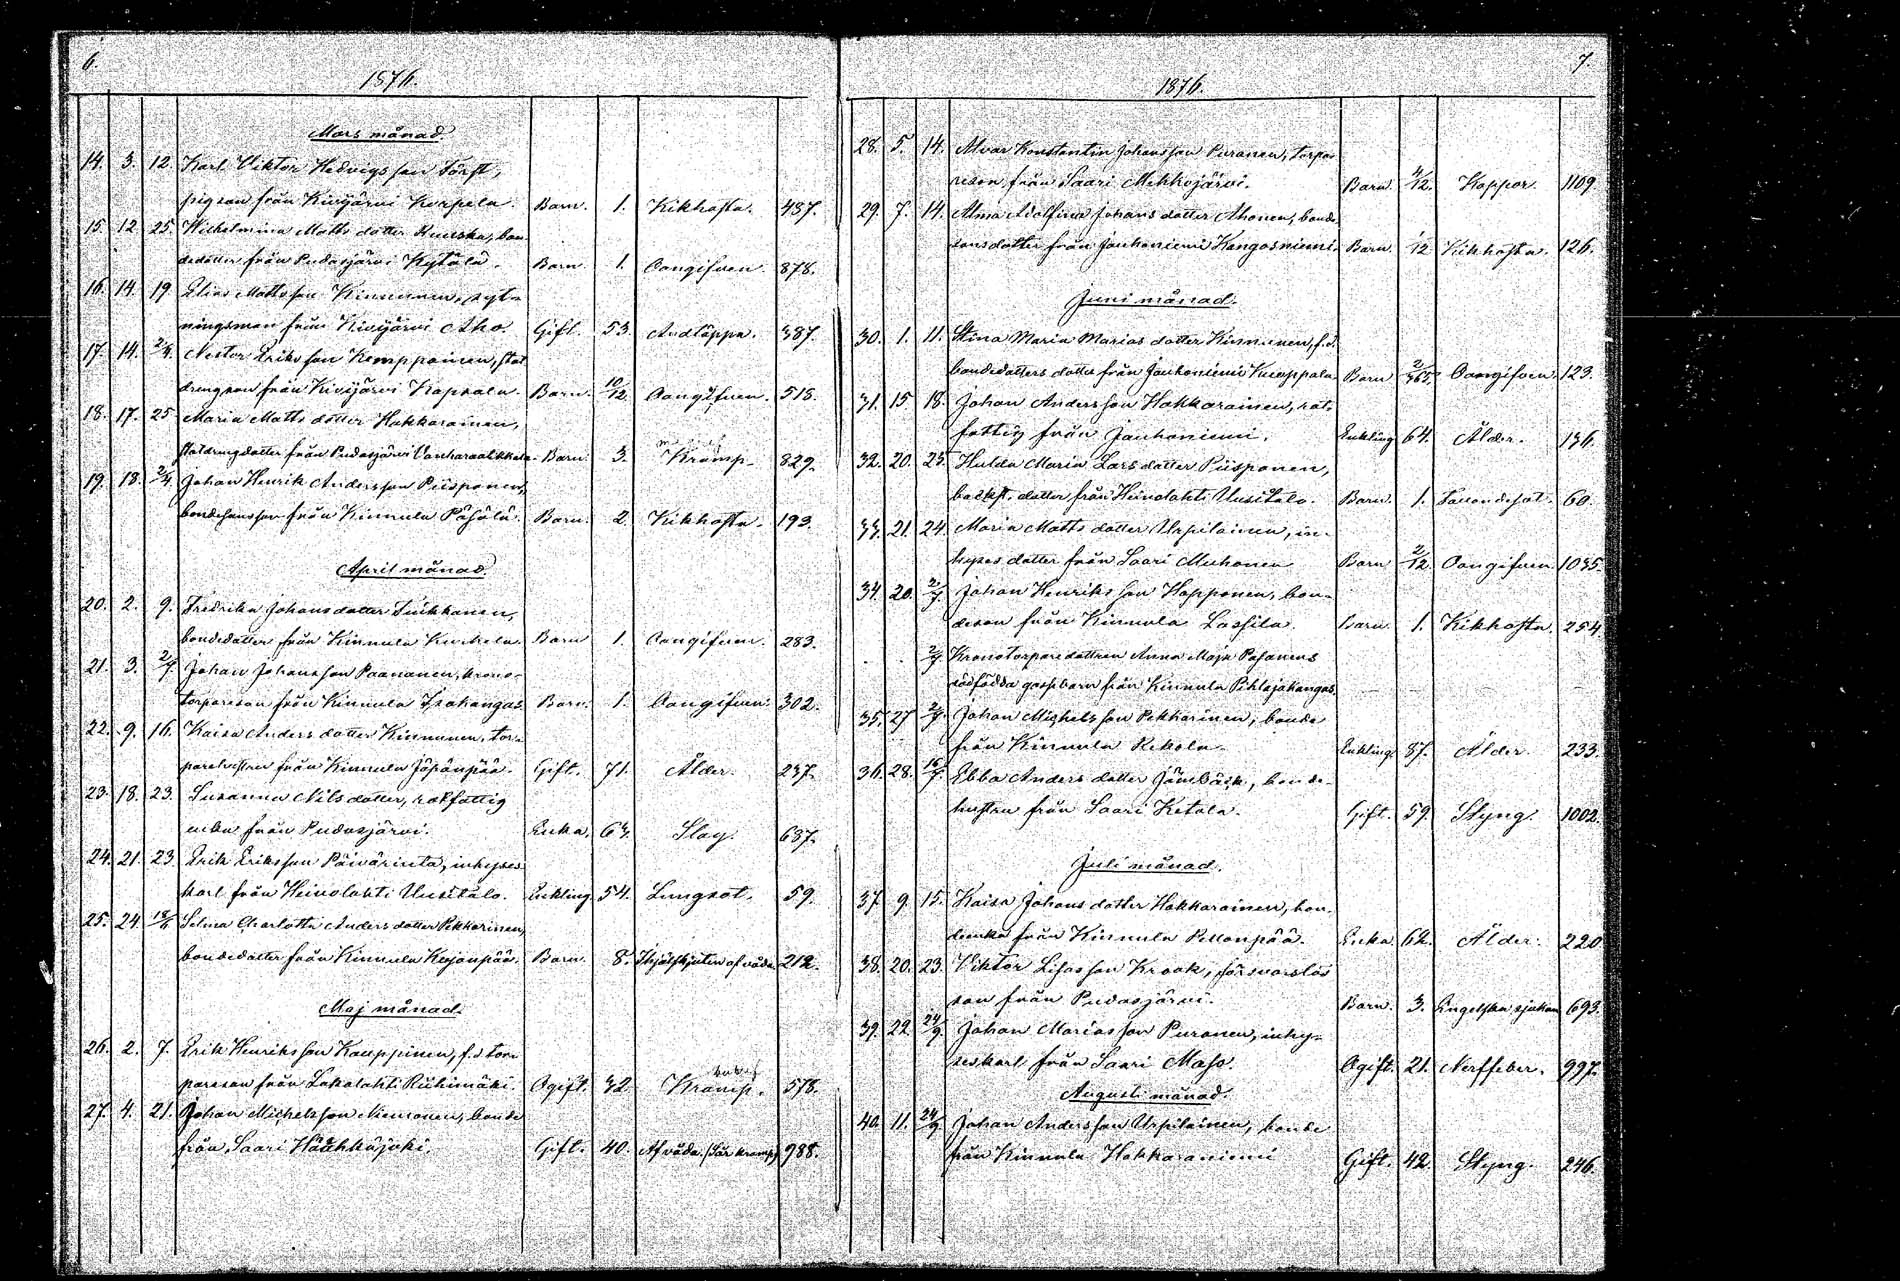 6.
1876.
Mars månad.
14. 3. 12. Karl Viktor Hedvigsson Först,
pigson från Kivijärvi Korpela. Barn. 1. Kikhosta. 487.
15. 12. 25. Wilhelmina Mattsdotter Ruuska, bon-
dedotter från Pudasjärvi Kytölä. Barn. 1. Oangifven. 878.
16. 14. 19. Elias Mattsson Kinnunen, syt-
ningsman från Kivijärvi Aho. Gift. 53. Andtäppa. 387.
17. 14. 2/4. Nestor Eriksson Kemppainen, stat
drengson från Kivijärvi Kopsala. Barn. 10/12. Oangifven. 518.
18. 17. 25. Maria Mattsdotter Hakkarainen,
statdrengdotter från Pudasjärvi Barn. 3. Kramp. 829.
19. 18. 2/4. Johan Henrik Andersson Piispanen,
bondesonson från Kinnula Barn. 2. Kikhosta. 193.
April månad.
20. 2. 9. Fredrika Johansdotter
bondedotter från Kinnula Barn 1. Oangifven. 283.
21. 3. Johan Johansson Paananen, krono-
torpareson från Kinnula Barn. 1. Oangifven. 302.
22. 9. 16. Kaisa Andersdotter Kinnunen, tor-
parehustru från Kinnula Jääjänpää. Gift. 71. Ålder. 237.
23. 18. 23. Susanna Nilsdotter, rotfattig
enka från Pudasjärvi. Enka. Slag. 637.
24. 21. 23. Erik Eriksson Päivärinta, inhyses
karl från Heinolahti Uusitalo. Enkling 54. Lungsot. 59.
25. 24. Selma Charlotta Andersdotter Pekkarinen,
bondedotter från Kinnula Barn. 8. Ihjälskjuten af våda. 212.
Maj månad.
26. 2. 7. Erik Henriksson Kauppinen, f.d. tor-
pareson från Lokalahti Riihimäki. Ogift. 32. Kramp. 578.
27. 4. 21. Johan Michelsson Niemonen, bonde
från Saari Gift. 40. Af våda. 988.
7.
1876.
28. 5. 14. Alvar Konstantin Johansson Puranen, torpa-
reson från Saari Mikkojärvi. Barn. Koppor. 1109.
29. 7. 14. Alma Adolfina Johansdotter Ahonen, bonde-
sonsdotter från Jauhoniemi Kangasniemi. Barn. 1/12 Kikhosta. 126.
Juni månad.
30. 1. 11. Stina Maria Mariasdotter Kinnunen, f.d.
bondedotters dotter från Jauhoniemi Kumppala. Barn 2/365. Oangifven. 123.
31. 15. 18. Johan Andersson Hakkarainen, rot-
fattig från Jauhoniemi. Enkling 64. Ålder. 136.
32. 20. 25. Hulda Maria Larsdotter Piisponen,
backst. dotter från Heinolahti Uusitalo. Barn. 1. 60.
33. 21. 24. Maria Mattsdotter Urpilainen, in-
hyses dotter från Saari Muhonen Barn 2/12. Oangifven. 1035.
34. 20. 2/7. Johan Henriksson Hopponen, bon-
deson från Kinnula Lassila. Barn. 1. Kikhosta. 254.
2/7 Kronotorparedottren Anna Maja Pasanens
dödfödda gossebarn från Kinnula Pihlajakangas.
35. 27. Johan Michelsson Pekkarinen, bonde
från Kinnula Rekola. Enkling. 87. Ålder. 233.
36. 28. 16/7. Ebba Andersdotter Jämbäck, bonde-
hustru från Saari Ketola. Gift. 59. Styng. 1002.
Juli månad.
37. 9. 15. Kaisa Johansdotter Hakkarainen, bon-
deenka från Kinnula Pellonpää. Enka. 62. Ålder. 220.
38. 20. 23. Viktor Lisasson Krook, försvarslös
son från Pudasjärvi. Barn. 3. Engelska sjukan 693.
39. 22. 24/9. Johan Mariasson Puranen, inhy-
seskarl från Saari Maso. Ogift. 21. Nerffeber. 997.
Augusti månad.
40. 11. 24/9. Johan Andersson Urpilainen, bonde
från Kinnula Hakkaraniemi Gift. 42. Styng. 246.